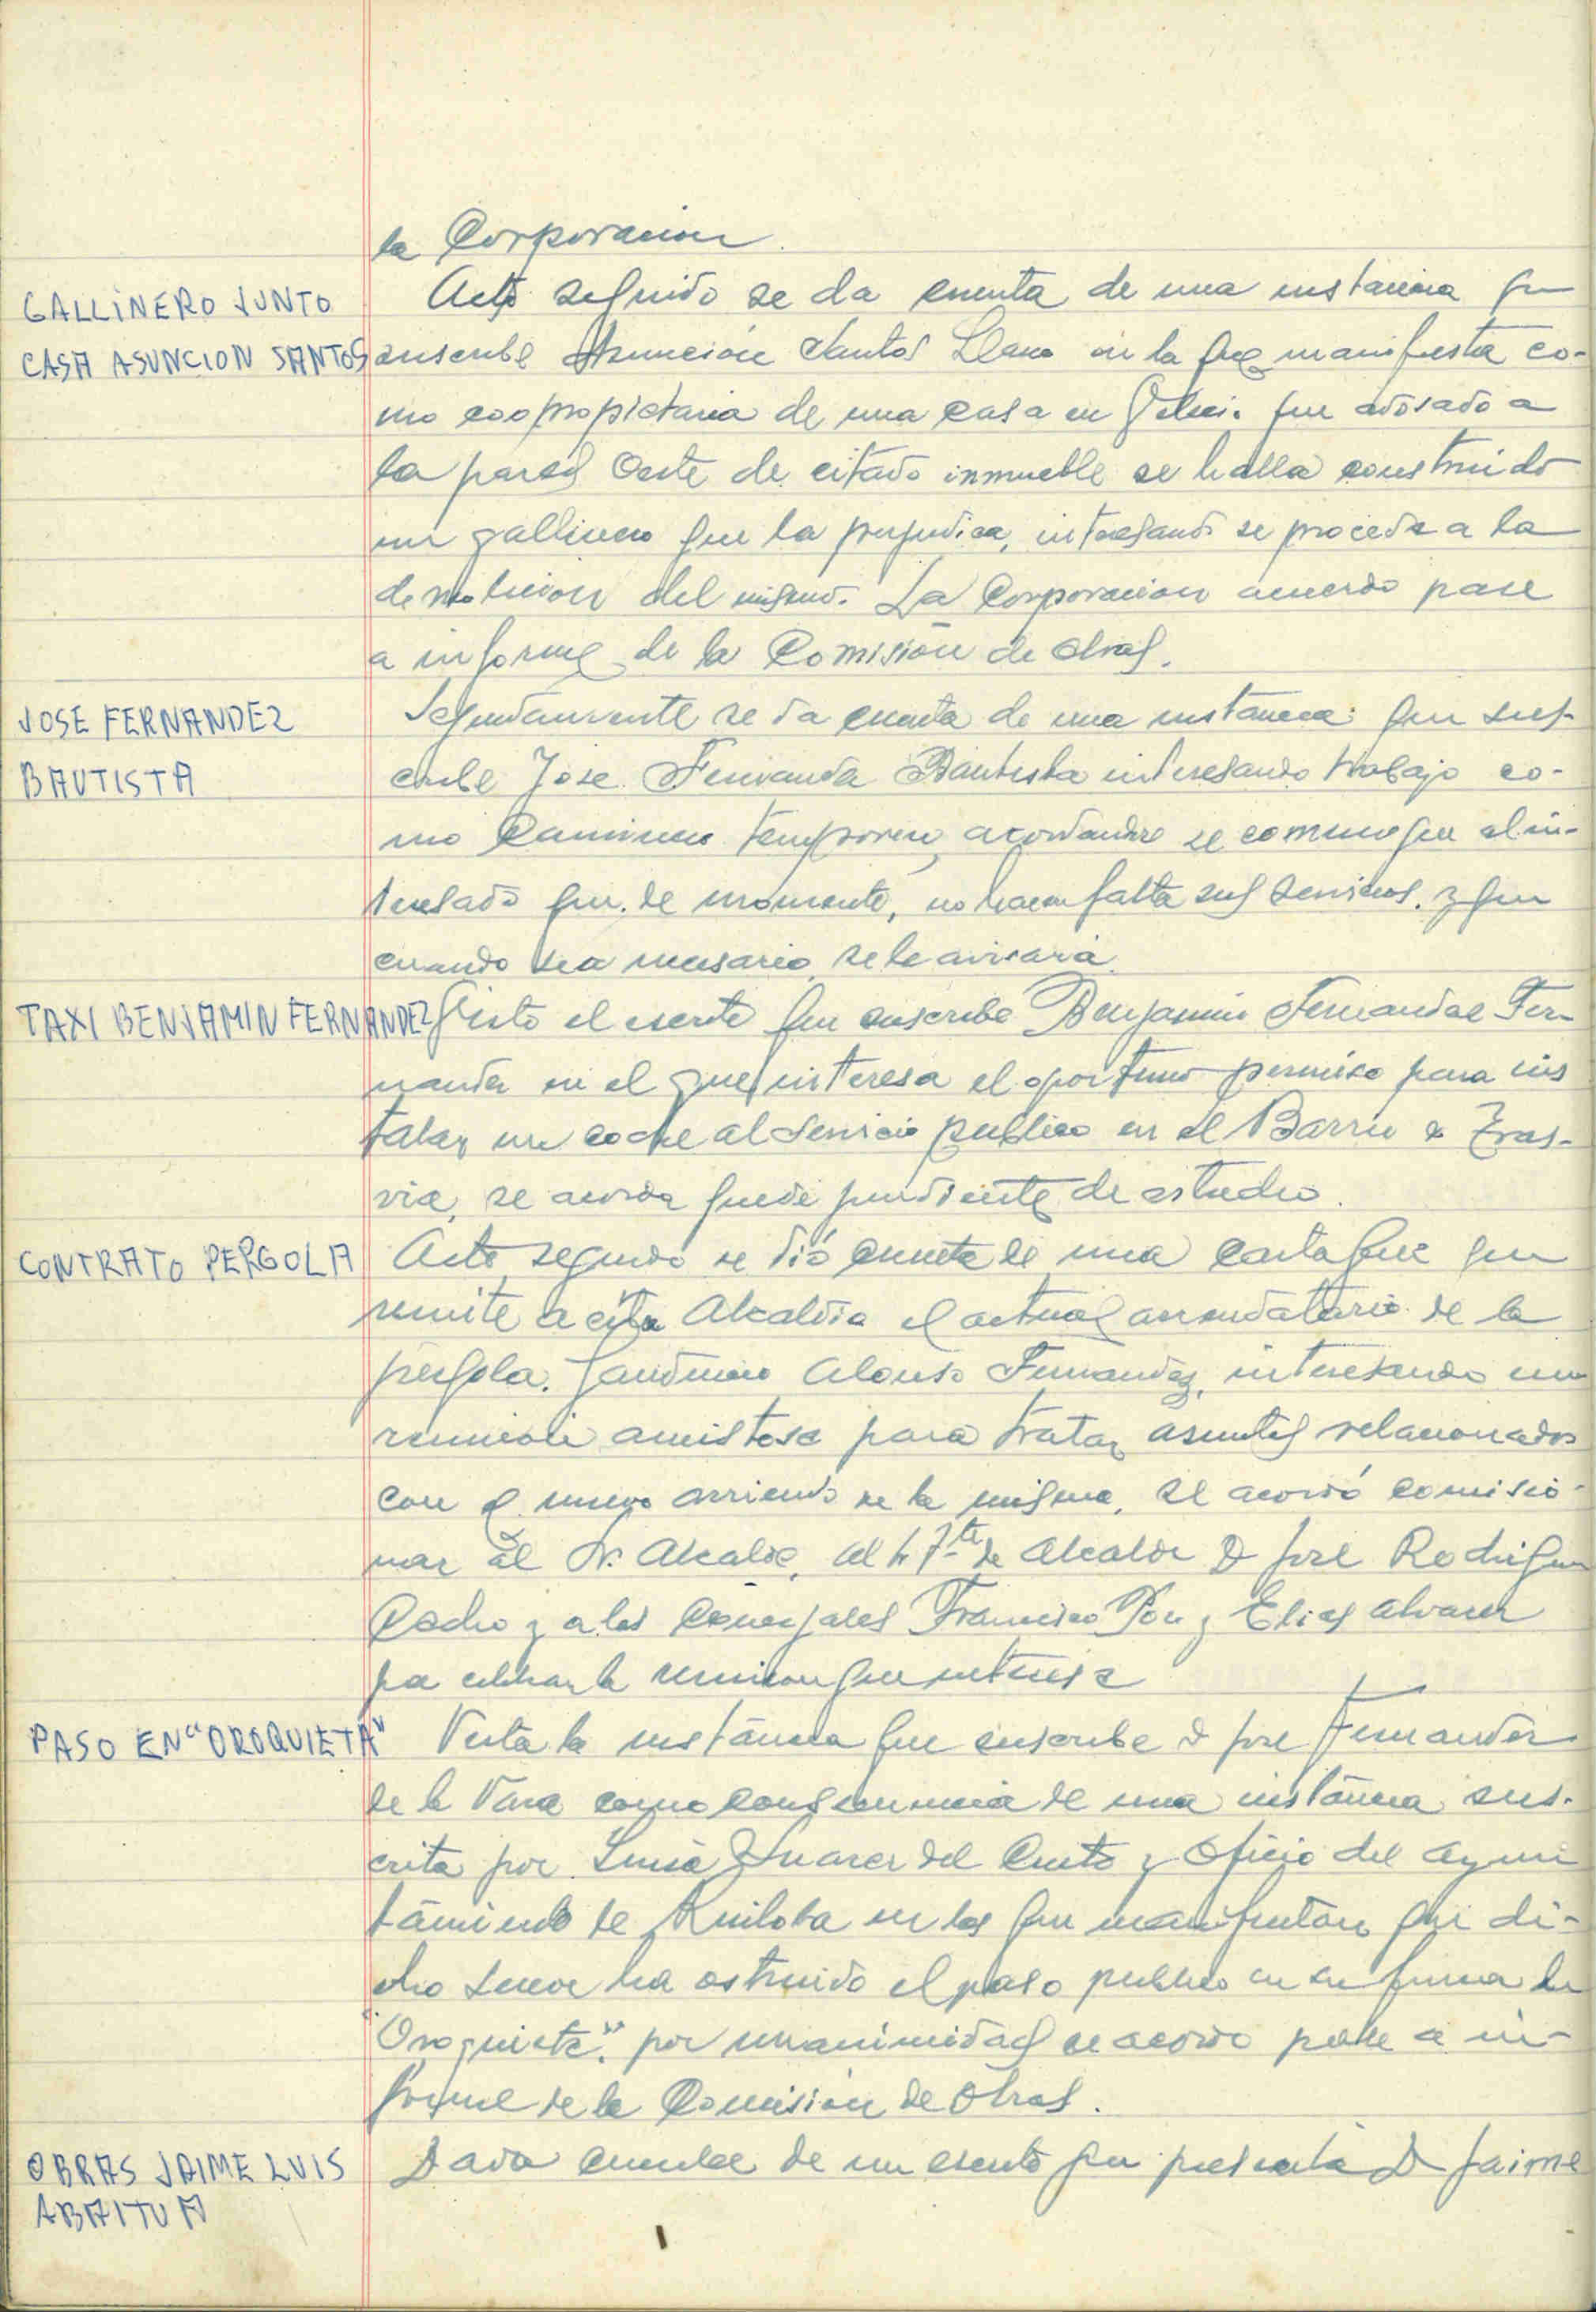 la Corporacion.
GALLINERO JUNTO
CASA ASUNCION SANTOS
Acto seguido se da cuenta de una instancia que
suscribe Asunción Santos Llano en la que manifiesta co-
mo coopropietaria de una casa en que adosado a
la pared Oeste de citado inmueble se halla construido
un gallinero que la perjudica, interesando se proceda a la
demolicion del mismo. La Corporacion acuerdo pase
a informe de la Comisión de obras.
JOSE FERNANDEZ
BAUTISTA
Seguidamente se da cuenta de una instancia que sus-
cribe Jose Fernandez Bautista interesando trabajo co-
mo Caminero temporero, acordandose se comunique al in-
teresado que de momento, no hacen falta sus servicios. y que
cuando sea necesario se le avisará.
TAXI BENJAMIN FERNANDEZ
Visto el escrito que suscribe Benjamin Fernandez Fer-
nandez en el que interesa el oportuno permiso para ins
talar un coche al servicio publico en el Barrio de Tras-
via, se acorda quede pendiente de estudio.
CONTRATO PERGOLA
Acto seguido se dió cuenta de una carta que que
remite a esta Alcaldia el actual arrendatario de la
pergola. Gaudencio Alonso Fernandez, interesando una
reunion amistosa para tratar asuntos relacionados
con el nuevo arriendo de la misma, se acordó comisio-
nar al Sr. Alcalde, al Tte de Alcalde D Jose Rodriguez
Cacho y a los Concejales Francisco Pon y Elias Alvarez
pa celebrar la reunion que interesa
PASO EN "OROQUIETA"
Vista la instancia que suscribe D Jose Fernandez
de la Vara como consecuencia de una instancia sus-
crita por Luisa Suarez del Cueto y Oficio del Ayun
tamiento de Ruiloba en los que manifiestan que di-
cho señor ha ostruido el paso publico en su finca de
"Oroquieta". por unanimidad se acordo pase a in-
forme de la Comisión de Obras.
OBRAS JAIME LUIS
ABAITUA
Dada cuenta de un escrito que presenta D Jaime